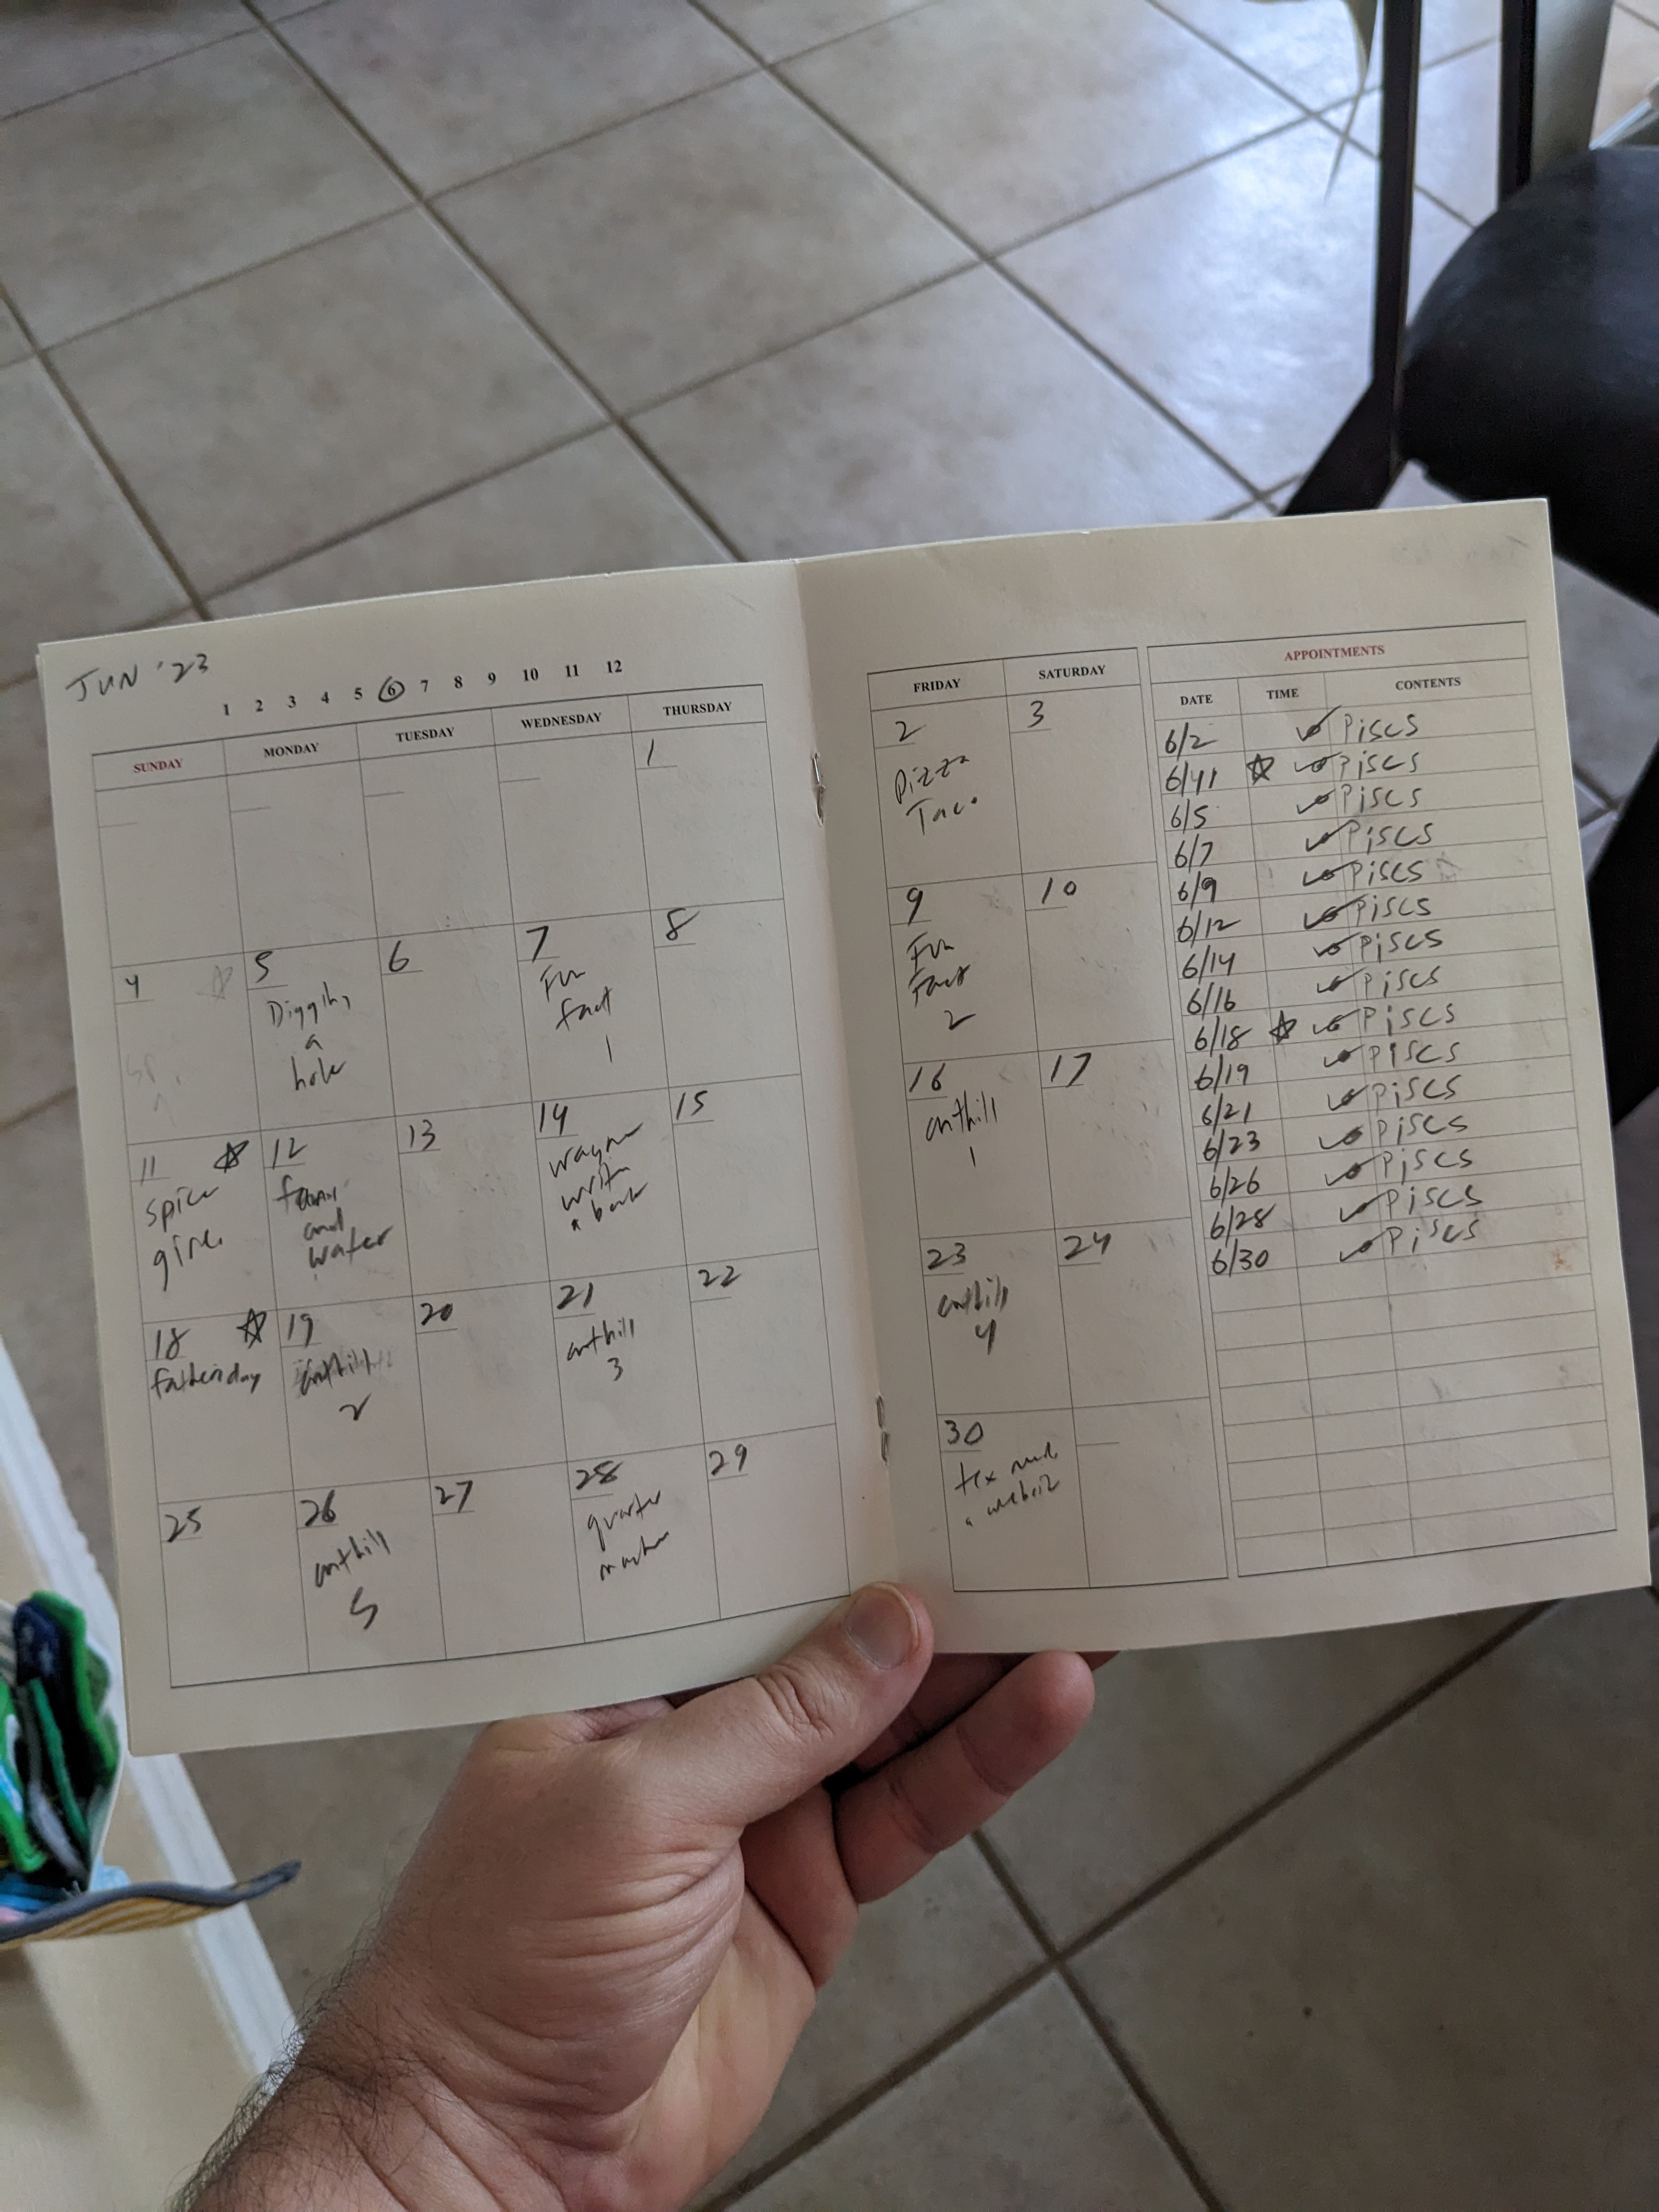 JUN '23
1 2 3 4 5 6 7 8 9 10 11 12
SUNDAY MONDAY TUESDAY WEDNESDAY THURSDAY
1
4 5 6 7 8
Digging
a
hole
Fun
fact
1
11 12 13 14 15
spice
farm
and
water
wayne
write
a book
18 19 20 21 22
fathersday
anthill
2
anthill
3
25 26 27 28 29
anthill
5
quarter
FRIDAY SATURDAY
2 3
Pizza
Taco
9 10
Fun
Fact
2
16 17
anthill
1
23 24
anthill
4
30
tex
a
APPOINTMENTS
DATE TIME CONTENTS
6/2 Piscs
6/11 Piscs
6/5 Piscs
6/7 Piscs
6/9 Piscs
6/12 Piscs
6/14 Piscs
6/16 Piscs
6/18 Piscs
6/19 Piscs
6/21 Piscs
6/23 Piscs
6/26 Piscs
6/28 Piscs
6/30 Piscs